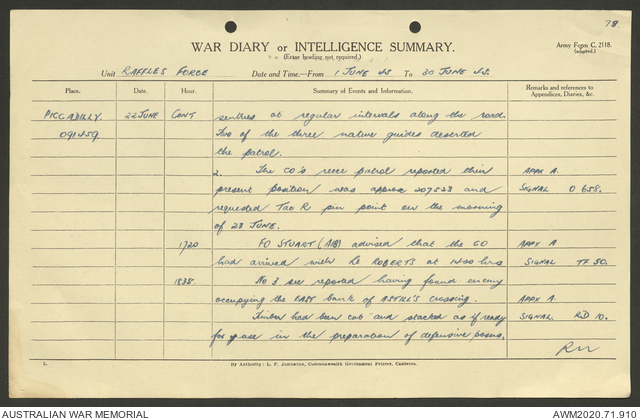 78
WAR DIARY or INTELLIGENCE SUMMARY.
(Erase heading not required.)
Army Form C. 2118.
(adapted.)
Unit RAFFLES FORCE Date and Time.—From 1 JUNE 45 To 30 JUNE 45.
Place. Date. Hour. Summary of Events and Information. Remarks and references to Appendices, Diaries, &c.
PICCADILLY. 22 JUNE CONT sentries at regular intervals along the road.
091459. Two of the three native guides deserted
the patrol.
2. The CO's recce patrol reported their APPX A.
present position was approx 207523 and SIGNAL O 658.
requested Tac R pin point on the morning
of 23 JUNE.
1720 FO STUART (AIB) advised that the CO APPX A
had arrived with Lt ROBERTS at 1400 hrs SIGNAL TF 50.
1835. No 3 sec reported having found enemy
occupying the EAST bank of ASTILL'S crossing. APPX A.
Timber had been cut and stacked as if ready SIGNAL RD 10.
for use in the preparation of defensive posns.
L. By Authority: L. F. Johnston, Commonwealth Government Printer, Canberra.
AUSTRALIAN WAR MEMORIAL AWM2020.71.910